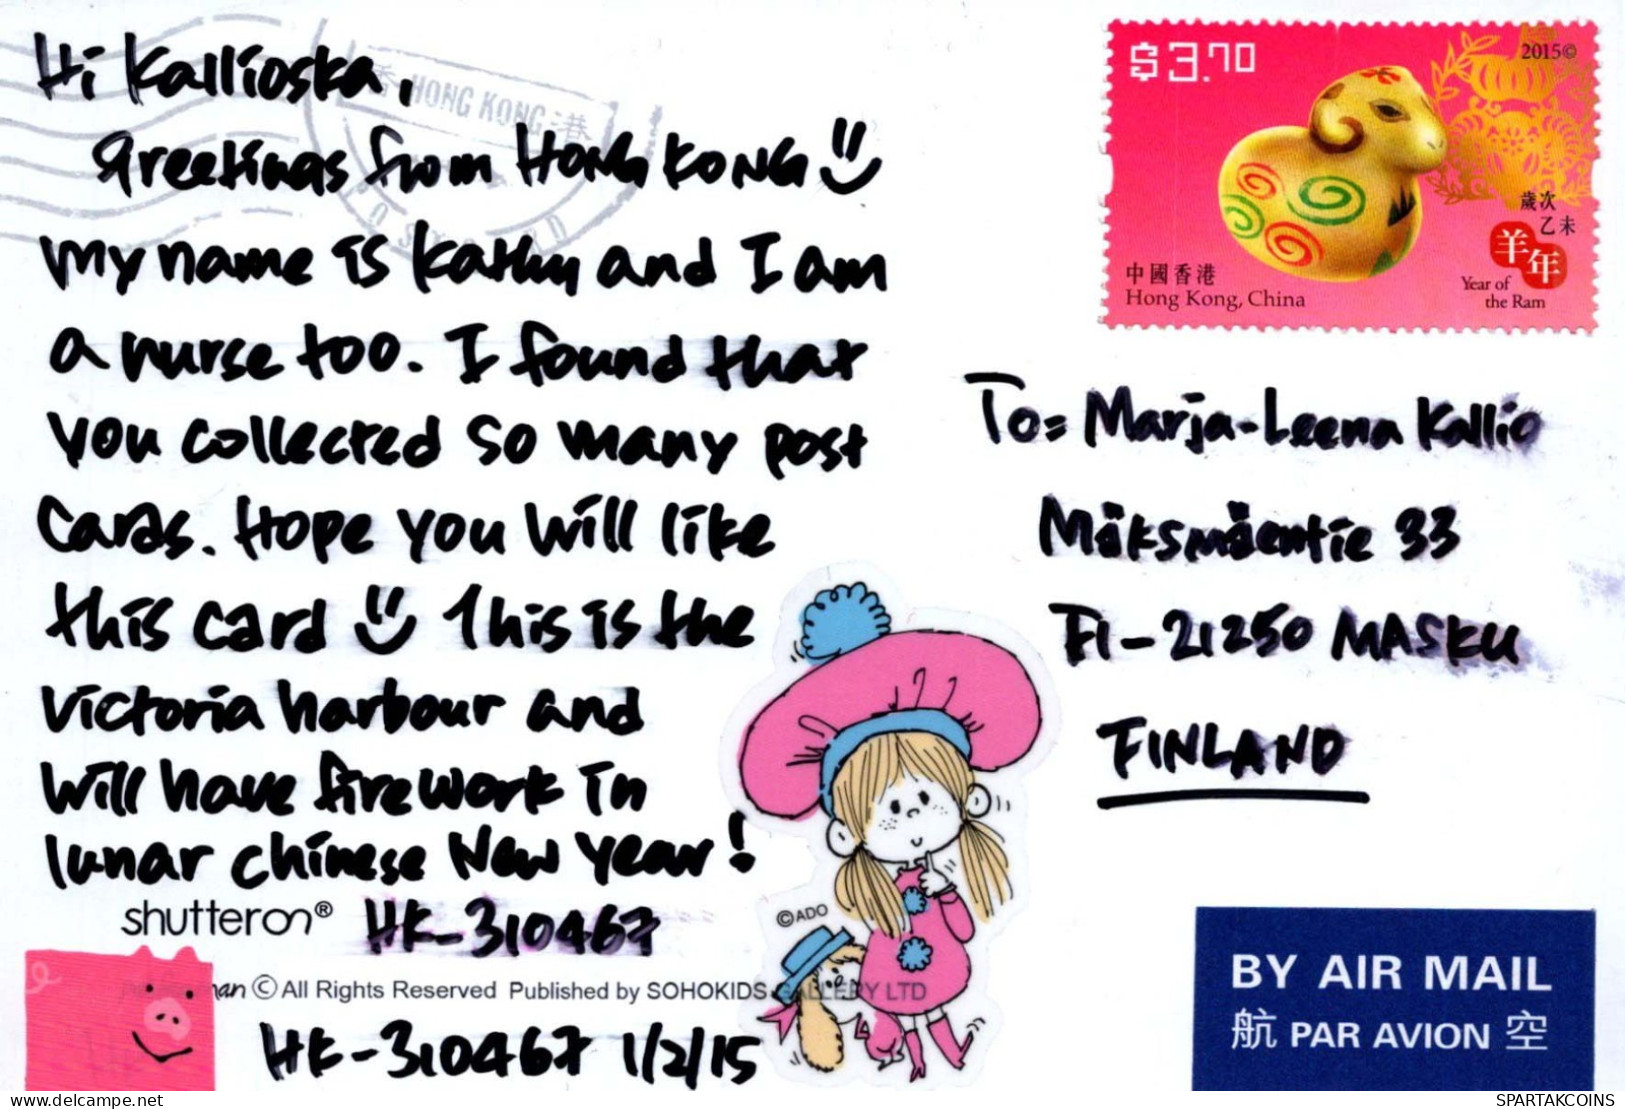 Hi Kallioska,
Greetings from HONG KONG
My name is Kathy and I am
a nurse too. I found that
you collected so many post
cards. Hope you will like
this card This is the
Victoria harbour and
will have firework in
lunar chinese New Year!
shutteron® HK-310467
an © All Rights Reserved Published by SOHOKIDS GALLERY LTD
HK-310467 1/2/15
©ADO
香 HONG KONG 港
$3.70
2015©
歲次
乙未
羊年
Year of
the Ram
中國香港
Hong Kong, China
To: Marja-Leena Kallio
Mäksmäentie 33
FI-21250 MASKU
FINLAND
BY AIR MAIL
航 PAR AVION 空
https://www.delcampe.net
SPARTAKCOINS